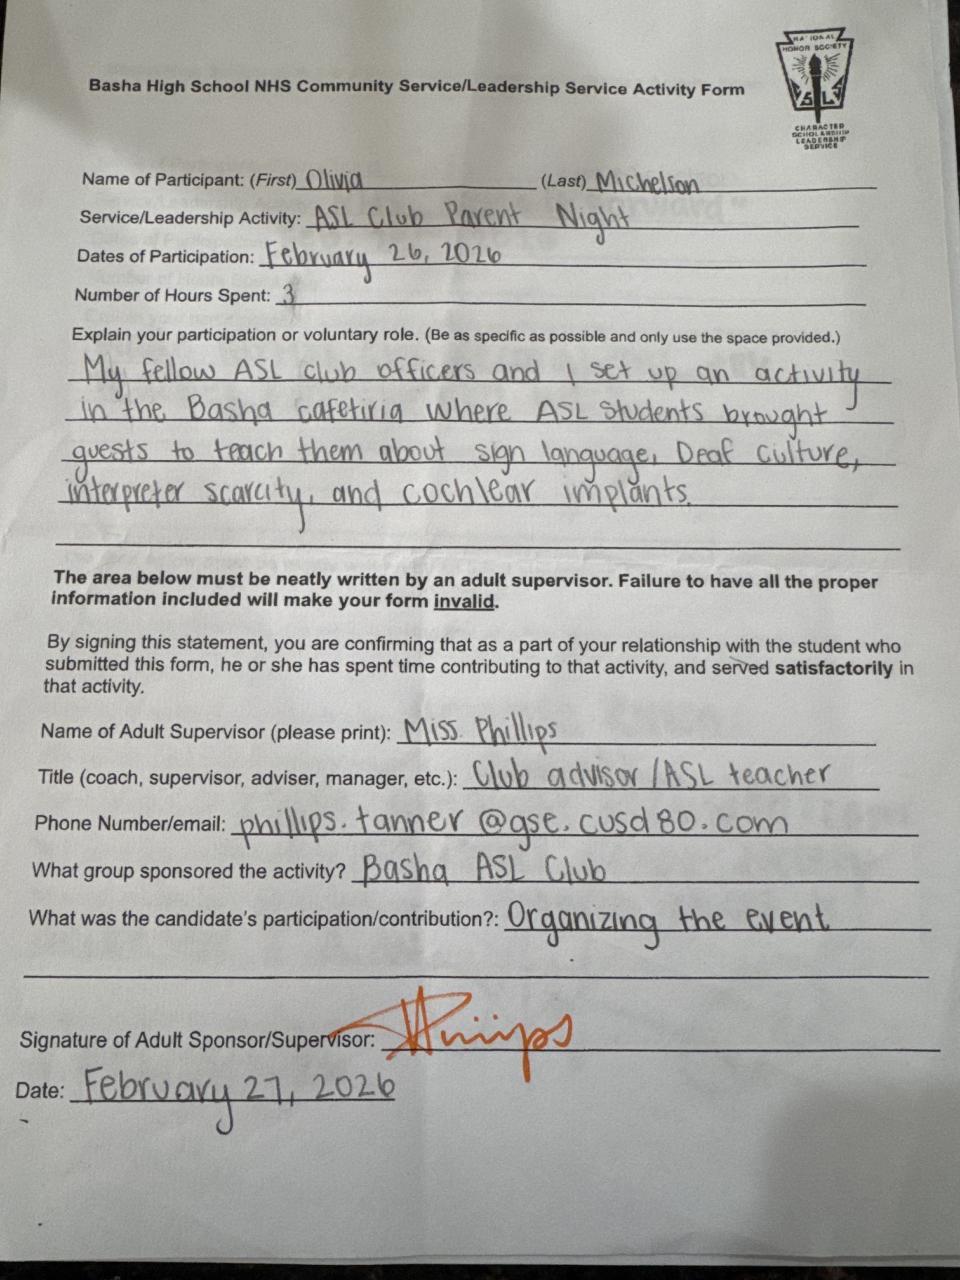 NATIONAL
HONOR SOCIETY
S L S
CHARACTER
SCHOLARSHIP
LEADERSHIP
SERVICE
Basha High School NHS Community Service/Leadership Service Activity Form
Name of Participant: (First) Olivia (Last) Michelson
Service/Leadership Activity: ASL Club Parent Night
Dates of Participation: February 26, 2026
Number of Hours Spent: 3
Explain your participation or voluntary role. (Be as specific as possible and only use the space provided.)
My fellow ASL club officers and I set up an activity
in the Basha cafetiria where ASL students brought
guests to teach them about sign language, Deaf culture,
interpreter scarcity, and cochlear implants.
The area below must be neatly written by an adult supervisor. Failure to have all the proper
information included will make your form invalid.
By signing this statement, you are confirming that as a part of your relationship with the student who
submitted this form, he or she has spent time contributing to that activity, and served satisfactorily in
that activity.
Name of Adult Supervisor (please print): Miss Phillips
Title (coach, supervisor, adviser, manager, etc.): Club advisor / ASL teacher
Phone Number/email: phillips.tanner@gse.cusd80.com
What group sponsored the activity? Basha ASL Club
What was the candidate's participation/contribution?: Organizing the event
Signature of Adult Sponsor/Supervisor:
Date: February 27, 2026